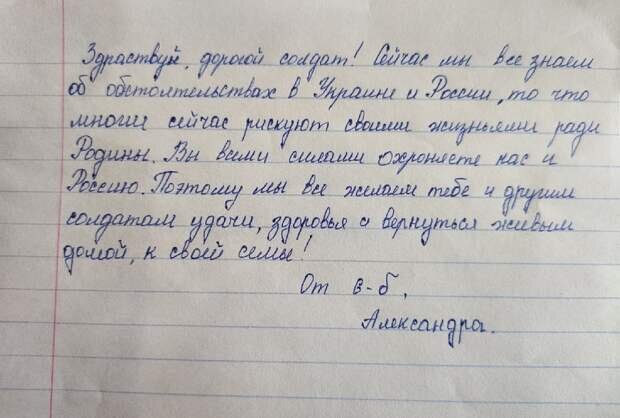 Здраствуй, дорогой солдат! Сейчас мы все знаем
об обстоятельствах в Украине и России, то что
многие сейчас рискуют своими жизньями ради
Родины. Вы всеми силами охроняете нас и
Россию. Поэтому мы все желаем тебе и другим
солдатам удачи, здоровья а вернуться живым
домой, к своей семы!
От 8-б,
Александра.